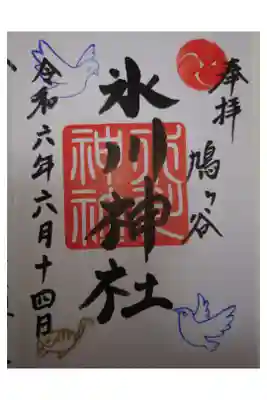 奉拝
鳩ヶ谷
氷川神社
氷川神社
令和六年六月十四日